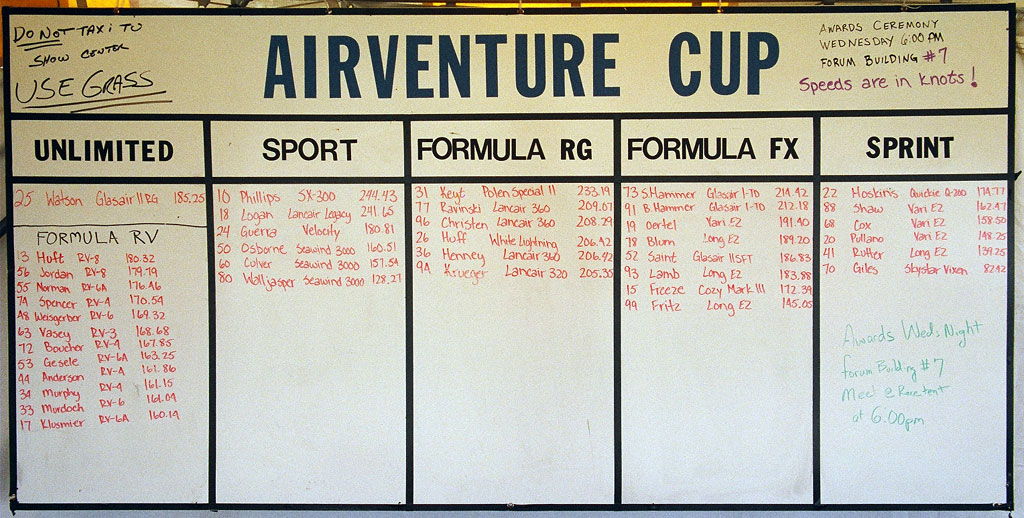 DO NOT TAXI TO
SHOW CENTER
USE GRASS
AIRVENTURE CUP
AWARDS CEREMONY
WEDNESDAY 6:00 PM
FORUM BUILDING #7
Speeds are in knots!
UNLIMITED
25 Watson Glasair II RG 185.25
FORMULA RV
13 Huft RV-8 180.32
56 Jordan RV-8 179.79
55 Norman RV-6A 176.46
74 Spencer RV-4 170.54
48 Weisgerber RV-6 169.32
63 Vasey RV-3 168.68
72 Boucher RV-4 167.85
53 Gesele RV-6A 163.25
44 Anderson RV-4 161.86
34 Murphy RV-4 161.15
33 Murdoch RV-6 161.09
17 Klusmier RV-6A 160.19
SPORT
10 Phillips SX-300 244.43
18 Logan Lancair Legacy 241.65
24 Guerra Velocity 180.81
50 Osborne Seawind 3000 160.51
60 Culver Seawind 3000 157.54
80 Walljasper Seawind 3000 128.27
FORMULA RG
31 Keyt Polen Special II 233.19
77 Ravinski Lancair 360 209.67
96 Christen Lancair 360 208.29
26 Huff White Lightning 206.42
36 Henney Lancair 360 206.42
9A Krueger Lancair 320 205.35
FORMULA FX
73 S.Hammer Glasair I-TD 214.42
91 B.Hammer Glasair I-TD 212.18
19 Oertel Vari EZ 191.40
78 Blum Long EZ 189.20
52 Saint Glasair II SFT 186.83
93 Lamb Long EZ 183.88
15 Freeze Cozy Mark III 172.39
99 Fritz Long EZ 145.05
SPRINT
22 Hoskins Quickie Q-200 174.77
88 Shaw Vari EZ 162.47
68 Cox Vari EZ 158.50
20 Pullano Vari EZ 148.25
41 Rutter Long EZ 139.25
70 Giles Skystar Vixen 82.42
Awards Weds. Night
forum Building #7
Meet @ Race tent
at 6:00pm